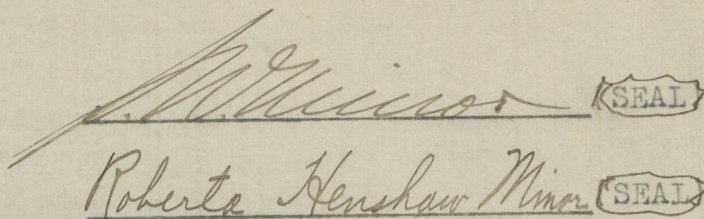 S. W. Minor (SEAL)
Roberta Henshaw Minor (SEAL)